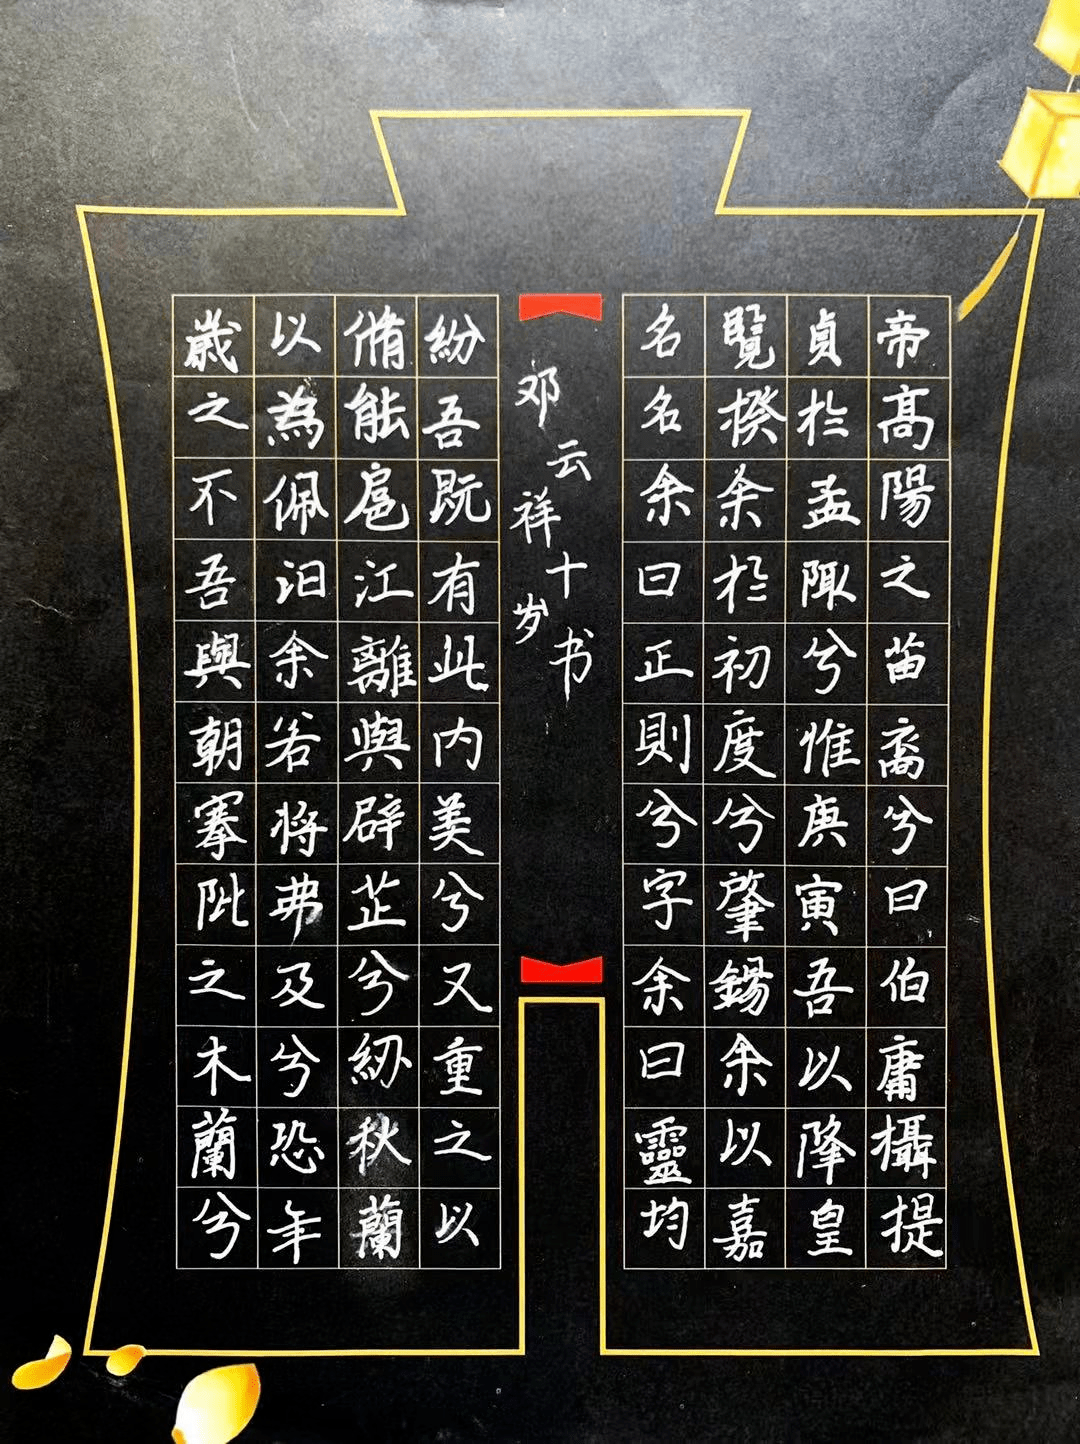 帝高陽之苗裔兮曰伯庸攝提
貞於孟陬兮惟庚寅吾以降皇
覽揆余於初度兮肇錫余以嘉
名名余曰正則兮字余曰靈均
邓云祥十岁书
紛吾既有此内美兮又重之以
脩能扈江離與辟芷兮紉秋蘭
以為佩汩余若将弗及兮恐年
歲之不吾與朝搴阰之木蘭兮